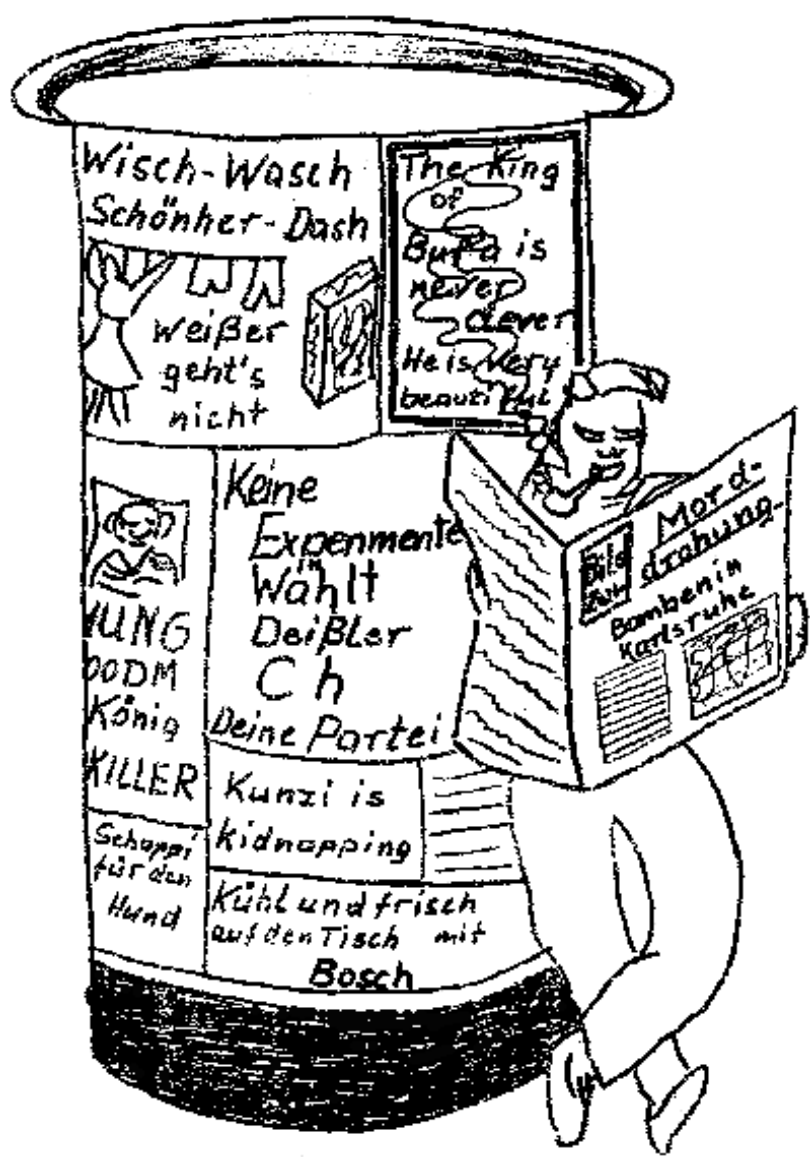 Wisch-Wasch
Schönher-Dash
weißer
geht's
nicht
The King
of
Burda is
never
clever
He is very
beautiful
UNG
00DM
König
KILLER
Keine
Expenmente
in
Wählt
Deißler
Ch
Deine Partei
Kunzi is
Kidnapping
Schappi
für den
Hund
Kühl und frisch
auf den Tisch mit
Bosch
Bild
Zeit
Mord-
drohung-
Bomben in
Karlsruhe